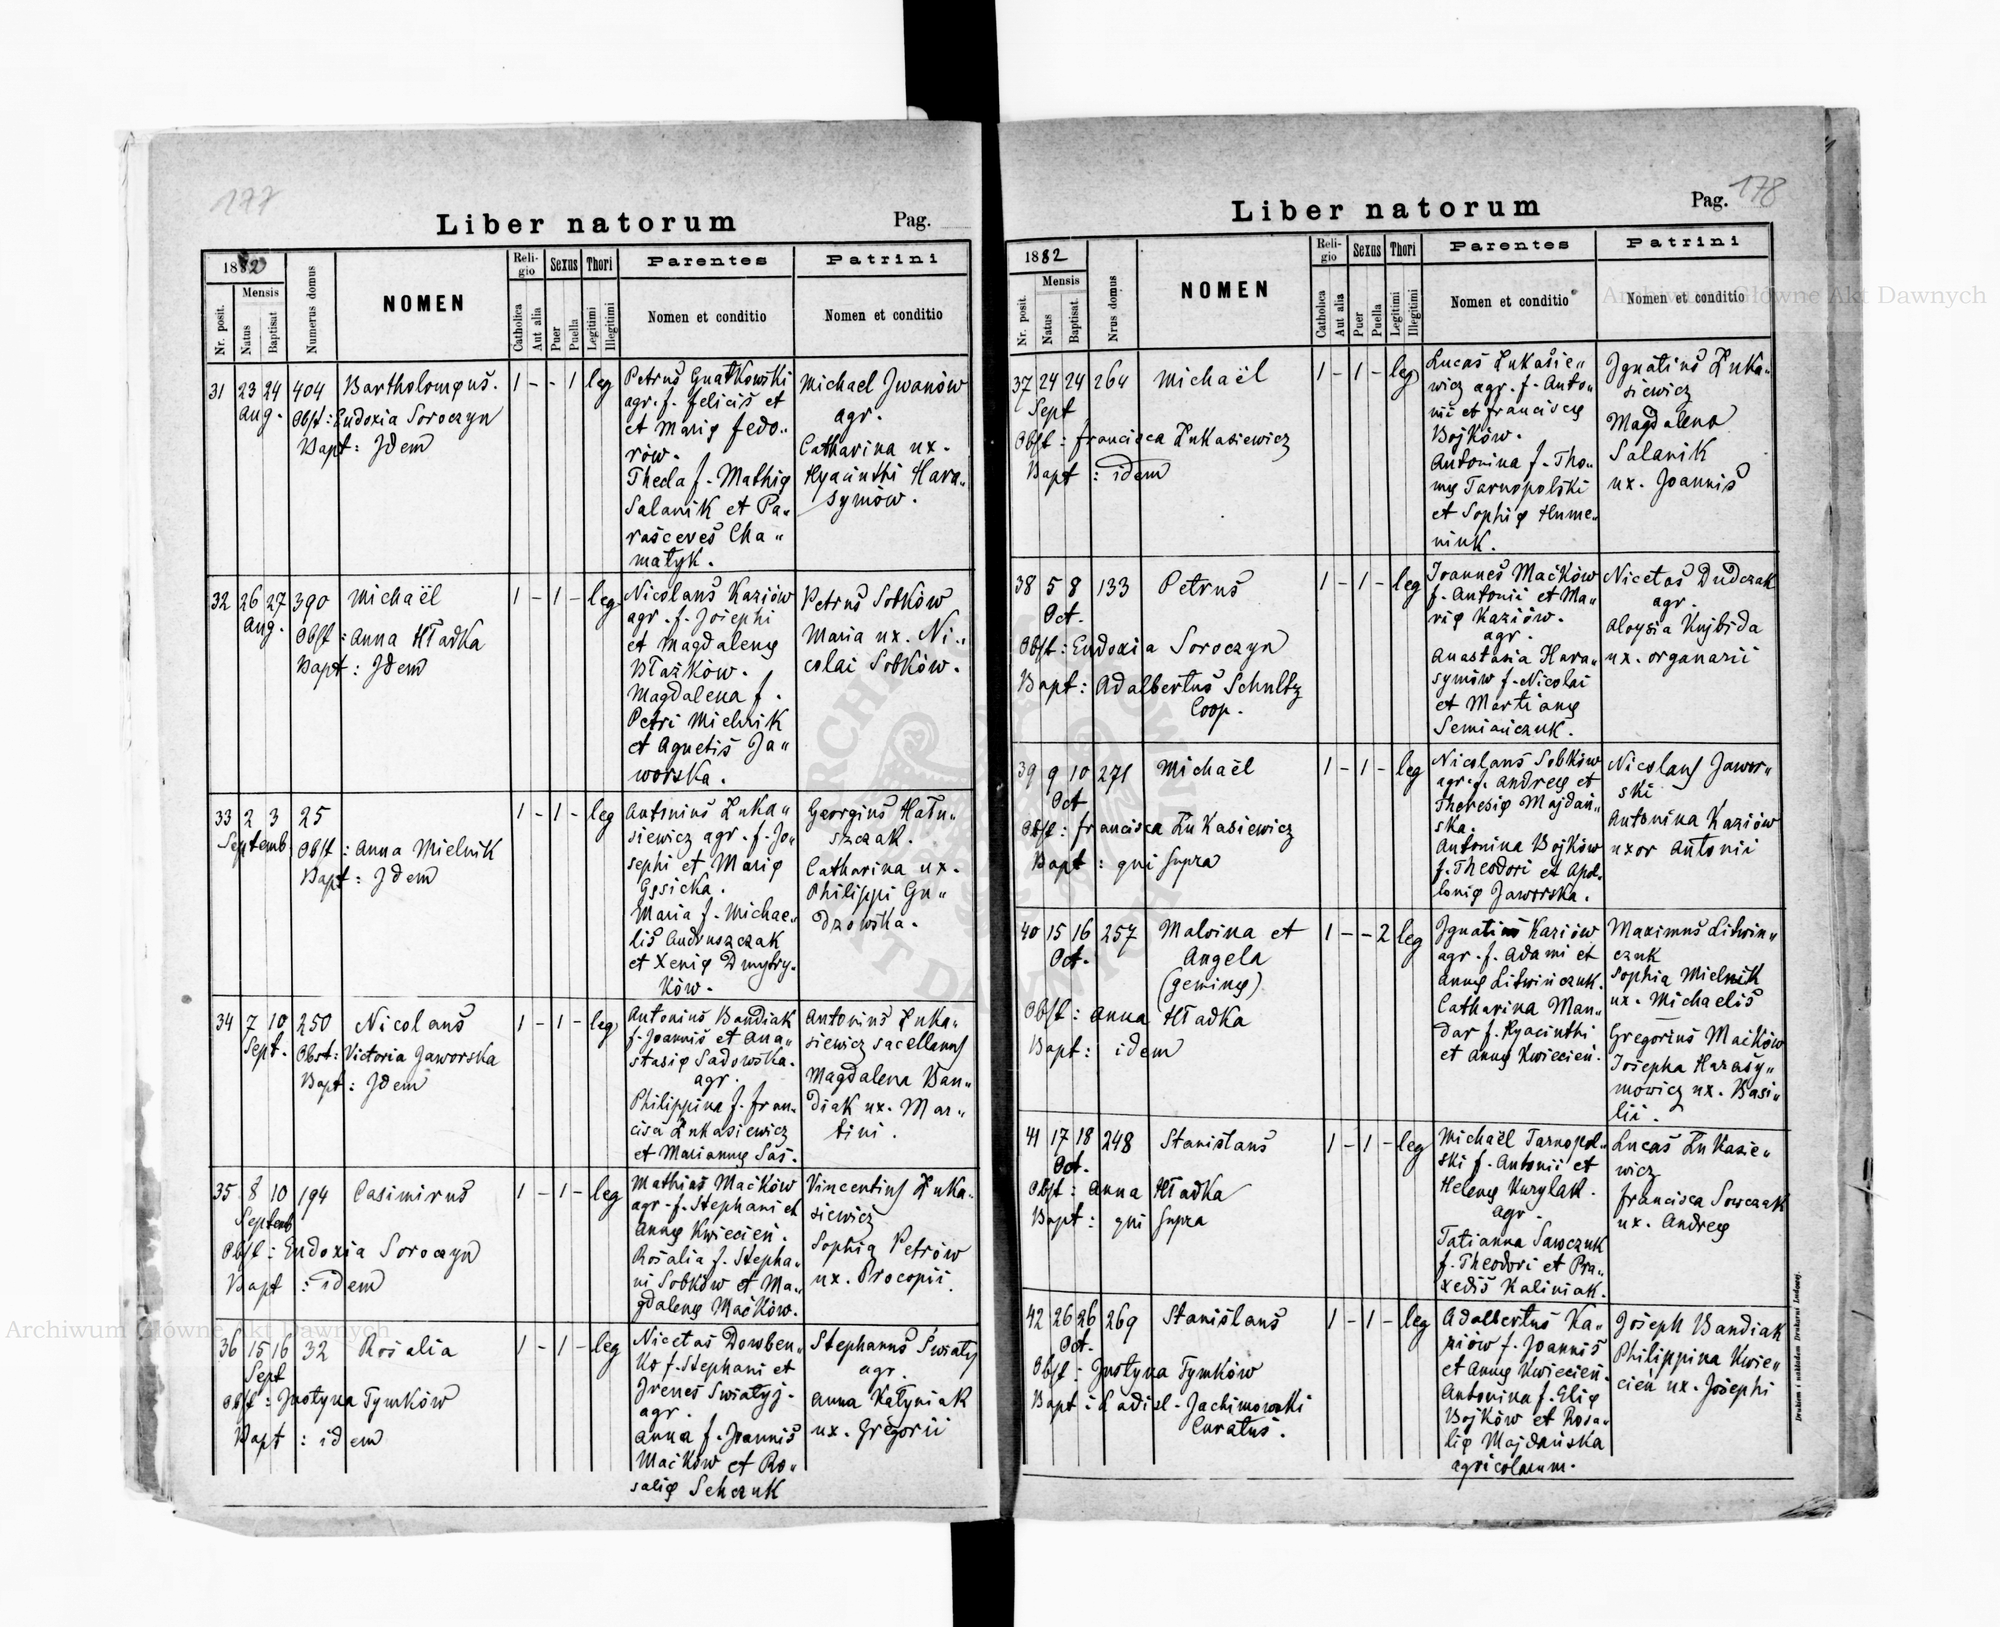 177
Liber natorum
Pag.
1882
Nr. posit.
Mensis
Natus
Baptisat
Numerus domus
NOMEN
Reli-
gio
Catholica
Aut alia
Sexus
Puer
Puella
Thori
Legitimi
Illegitimi
Parentes
Nomen et conditio
Patrini
Nomen et conditio
31 23 24 404 Bartholomęus. 1 - - 1 leg
Aug. Obst: Eudoxia Soroczyn
Bapt: Idem
Petrus Gnatkowski
agr. f. Felicis et
et Marię Fedo„
rów.
Thecla f. Mathię
Salanik et Pa„
rasceves Cha„
matyk.
Michael Iwanów
agr.
Catharina ux.
Hyacinthi Hara„
symów.
32 26 27 390 Michaël 1 - 1 - leg
Aug. Obst: Anna Hładka
Bapt: Idem
Nicolaus Kaziów
agr. f. Josephi
et Magdalenę
Błażków.
Magdalena f.
Petri Mielnik
et Agnetis Ja„
worska.
Petrus Sobków
Maria ux. Ni„
colai Sobków.
33 2 3 25 1 - 1 - leg
Septemb Obst: Anna Mielnik
Bapt: Idem
Antonius Łuka„
siewicz agr. f. Jo„
sephi et Marię
Gęsicka.
Maria f. Michae„
lis Andruszczak
et Xenię Dmytry„
ków.
Georgius Hału„
szczak.
Catharina ux.
Philippi Gu„
dzowska.
34 7 10 250 Nicolaus 1 - 1 - leg
Sept. Obst: Victoria Jaworska
Bapt: Idem
Antonius Bandiak
f. Joannis et Ana„
stasię Sadowska.
agr.
Philippina f. Fran„
cisci Łukasiewicz
et Mariannę Sas.
Antonius Łuka„
siewicz sacellanus
Magdalena Ban„
diak ux. Mar„
tini.
35 8 10 194 Casimirus 1 - 1 - leg
Septemb
Obst: Eudoxia Soroczyn
Bapt: idem
Mathias Maćków
agr. f. Stephani et
Annę Kwiecień.
Rosalia f. Stepha„
ni Sobków et Ma„
gdalenę Maćków.
Vincentius Łuka„
siewicz
Sophia Petrów
ux. Procopii.
36 15 16 32 Rosalia 1 - 1 - leg
Sept
Obst: Justyna Tymków
Bapt: idem
Nicetas Dowben„
ko f. Stephani et
Irenes Swiatyj.
agr.
Anna f. Joannis
Maćków et Ro„
salię Schczuk
Stephanus Swiatyj
agr.
Anna Kałyniak
ux. Gregorii
178
Liber natorum
Pag.
1882
Nr. posit.
Mensis
Natus
Baptisat
Nrus domus
NOMEN
Reli-
gio
Catholica
Aut alia
Sexus
Puer
Puella
Thori
Legitimi
Illegitimi
Parentes
Nomen et conditio
Patrini
Nomen et conditio
37 24 24 264 Michaël 1 - 1 - leg
Sept
Obst: Francisca Łukasiewicz
Bapt: idem
Lucas Łukasie„
wicz agr. f. Anto„
nii et Franciscę
Bojków.
Antonina f. Tho„
mę Tarnopolski
et Sophię Hume„
niuk.
Ignatius Łuka„
siewicz
Magdalena
Salanik
ux. Joannis
38 5 8 133 Petrus 1 - 1 - leg
Oct.
Obst: Eudoxia Soroczyn
Bapt: Adalbertus Schultz
Coop.
Joannes Maćków
f. Antonii et Ma„
rię Kaziów.
agr.
Anastasia Hara„
symów f. Nicolai
et Martianę
Semiańczuk.
Nicetas Dudczak
agr.
Aloysia Kujbida
ux. organarii
39 9 10 271 Michaël 1 - 1 - leg
Oct
Obst: Francisca Łukasiewicz
Bapt: qui supra
Nicolaus Sobków
agr. f. Andreę et
Theresię Majdań„
ska.
Antonina Bojków
f. Theodori et Apol„
lonię Jaworska.
Nicolaus Jawor„
ski
Antonina Kaziów
uxor Antonii
40 15 16 257 Malvina et 1 - - 2 leg
Oct. Angela
(gemine)
Obst: Anna Hładka
Bapt: idem
Ignatius Kaziów
agr. f. Adami et
Annę Litwińczuk.
Catharina Man„
dar f. Hyacinthi
et Annę Kwiecień.
Maximus Litwin„
czuk
Sophia Mielnik
ux. Michaelis
Gregorius Maćków
Josepha Harasy„
mowicz ux. Basi„
lii.
41 17 18 248 Stanislaus 1 - 1 - leg
Oct.
Obst: Anna Hładka
Bapt: qui supra
Michaël Tarnopol„
ski f. Antonii et
Helenę Kurylak.
agr.
Tatianna Sawczuk
f. Theodori et Pra„
xedis Kaliniak.
Lucas Łukasie„
wicz
Francisca Sowczak
ux. Andreę
42 26 26 269 Stanislaus 1 - 1 - leg
Oct.
Obst: Justyna Tymków
Bapt: Ladisl. Jachimowski
Curatus.
Adalbertus Ka„
ziów f. Joannis
et Annę Kwiecień.
Antonina f. Elię
Bojków et Rosa„
lię Majdańska
agricolarum.
Joseph Bandiak
Philippina Kwie„
cień ux. Josephi
Drukiem i nakładem Drukarni Ludowej.
Archiwum Główne Akt Dawnych
Archiwum Główne Akt Dawnych